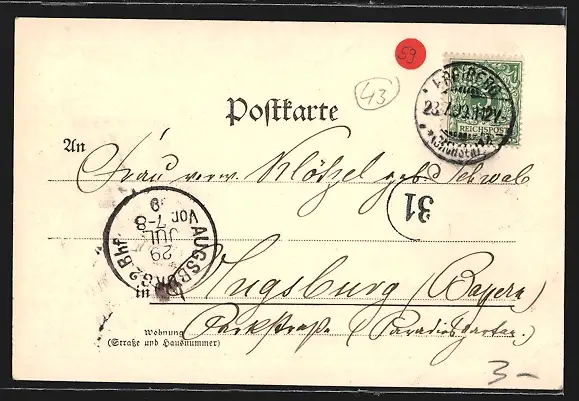 59
43
Postkarte
REICHSPOST
FREIBERG
(SACHSEN)
An Frau verw. Klötzel geb. Schwab
31
AUGSBURG 2 Bhf.
29
JUL
Vor. 7-8
in Augsburg (Bayern)
Wohnung
(Straße und Hausnummer)
Parkstraße (Paradiesgarten.)
3-